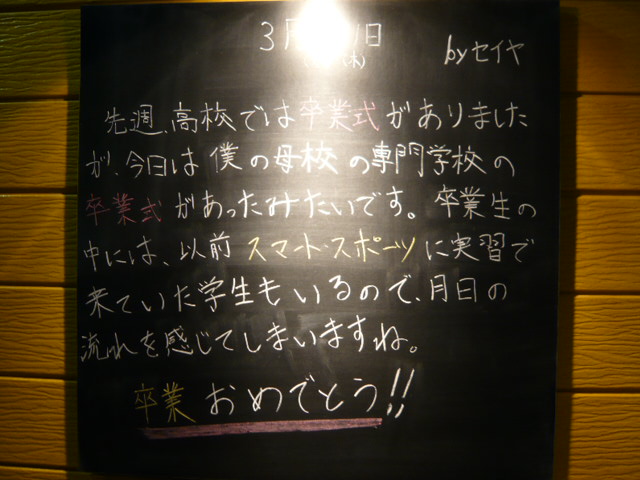 3月 1日
byセイヤ
先週、高校では卒業式がありました
が、今日は僕の母校の専門学校の
卒業式があったみたいです。卒業生の
中には、以前スマート・スポーツに実習で
来ていた学生もいるので、月日の
流れを感じてしまいますね。
卒業おめでとう!!